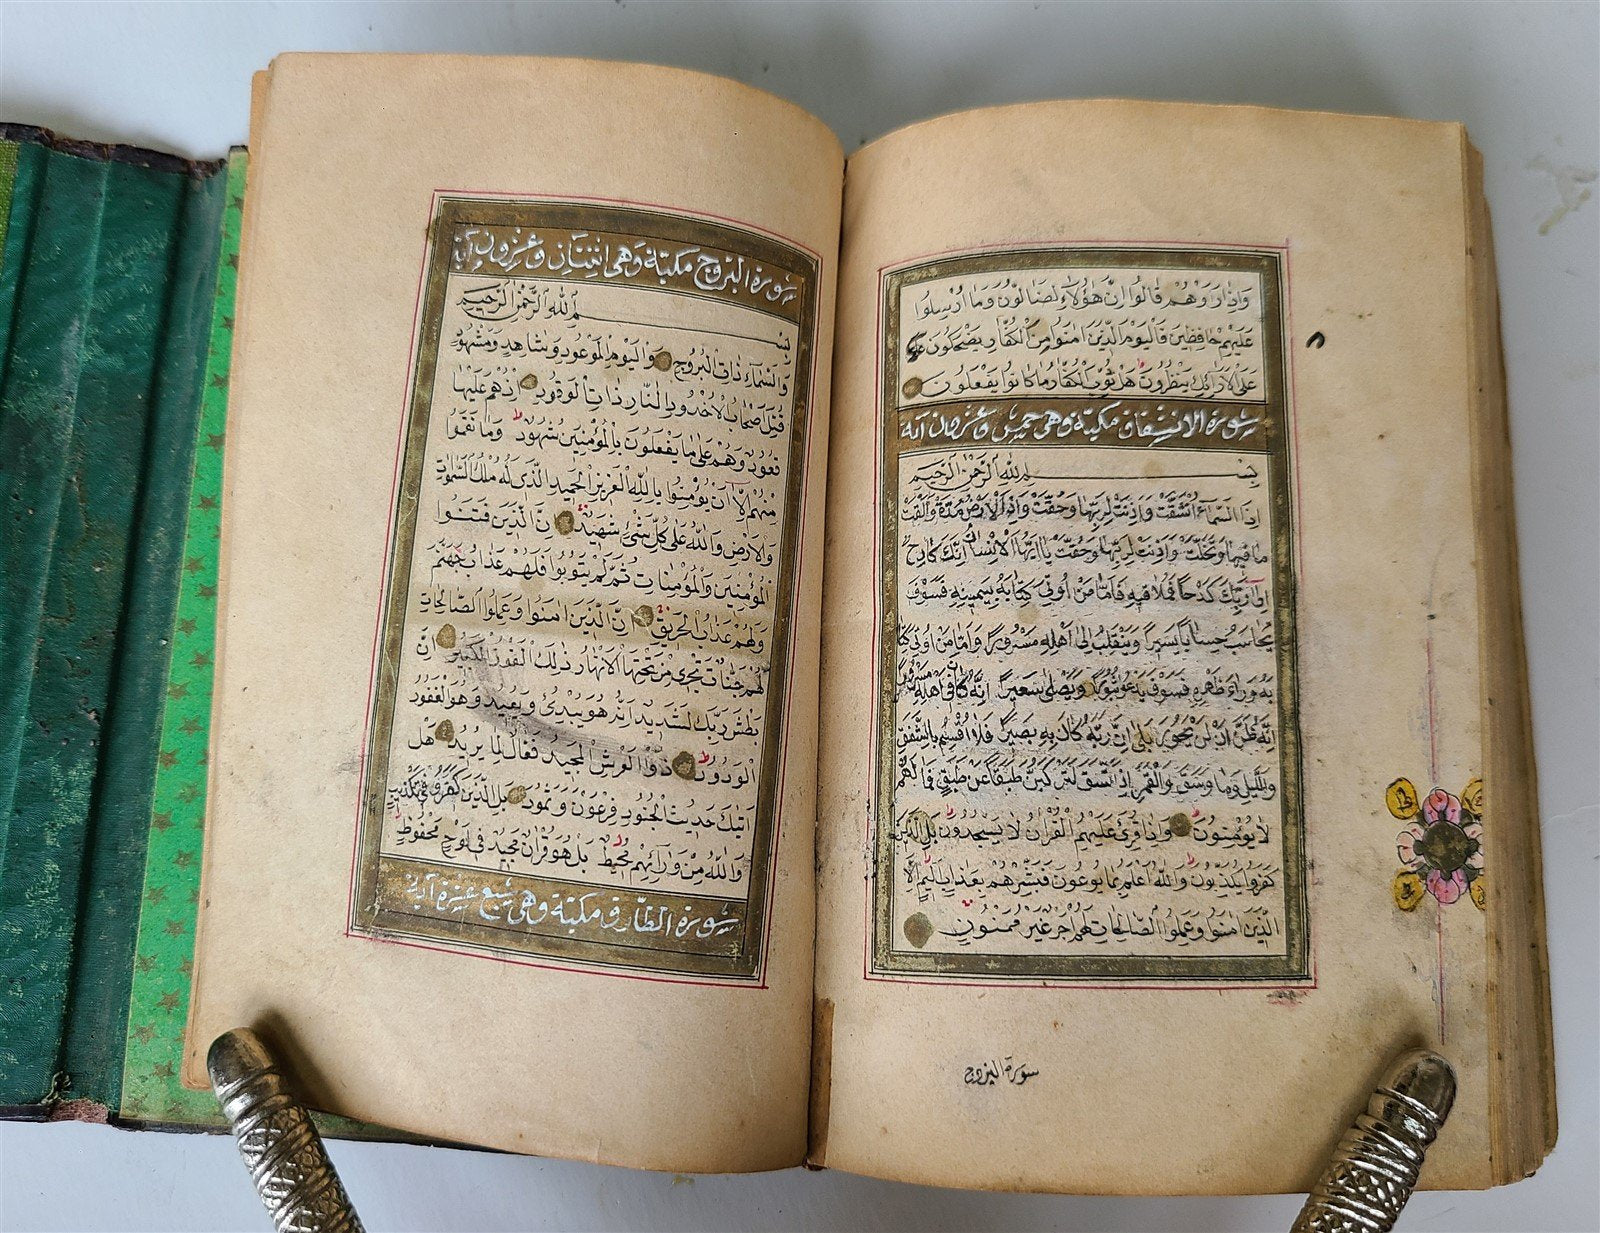 وَاِذَا رَاَوْهُمْ قَالُوا اِنَّ هٰؤُلَاءِ لَضَالُّونَ وَمَا اُرْسِلُوا
عَلَيْهِمْ حَافِظِينَ فَالْيَوْمَ الَّذِينَ اٰمَنُوا مِنَ الْكُفَّارِ يَضْحَكُونَ
عَلَى الْاَرَائِكِ يَنْظُرُونَ هَلْ ثُوِّبَ الْكُفَّارُ مَا كَانُوا يَفْعَلُونَ
سورة الانشقاق مكية وهى خمس وعشرون آية
بِسْمِ اللهِ الرَّحْمٰنِ الرَّحِيمِ
اِذَا السَّمَاءُ انْشَقَّتْ وَاَذِنَتْ لِرَبِّهَا وَحُقَّتْ وَاِذَا الْاَرْضُ مُدَّتْ وَاَلْقَتْ
مَا فِيهَا وَتَخَلَّتْ وَاَذِنَتْ لِرَبِّهَا وَحُقَّتْ يَا اَيُّهَا الْاِنْسَانُ اِنَّكَ كَادِحٌ
اِلٰى رَبِّكَ كَدْحًا فَمُلَاقِيهِ فَاَمَّا مَنْ اُوتِىَ كِتَابَهُ بِيَمِينِهِ فَسَوْفَ
يُحَاسَبُ حِسَابًا يَسِيرًا وَيَنْقَلِبُ اِلٰى اَهْلِهِ مَسْرُورًا وَاَمَّا مَنْ اُوتِىَ كِتَا
بَهُ وَرَاءَ ظَهْرِهِ فَسَوْفَ يَدْعُو ثُبُورًا وَيَصْلٰى سَعِيرًا اِنَّهُ كَانَ فِى اَهْلِهِ مَسْرُورًا
اِنَّهُ ظَنَّ اَنْ لَنْ يَحُورَ بَلٰى اِنَّ رَبَّهُ كَانَ بِهِ بَصِيرًا فَلَا اُقْسِمُ بِالشَّفَقِ
وَاللَّيْلِ وَمَا وَسَقَ وَالْقَمَرِ اِذَا اتَّسَقَ لَتَرْكَبُنَّ طَبَقًا عَنْ طَبَقٍ فَمَا لَهُمْ
لَا يُؤْمِنُونَ وَاِذَا قُرِئَ عَلَيْهِمُ الْقُرْاٰنُ لَا يَسْجُدُونَ بَلِ الَّذِينَ
كَفَرُوا يُكَذِّبُونَ وَاللهُ اَعْلَمُ بِمَا يُوعُونَ فَبَشِّرْهُمْ بِعَذَابٍ اَلِيمٍ اِلَّا
الَّذِينَ اٰمَنُوا وَعَمِلُوا الصَّالِحَاتِ لَهُمْ اَجْرٌ غَيْرُ مَمْنُونٍ
سورة البروج
سورة البروج مكية وهى اثنتان وعشرون آية
بِسْمِ اللهِ الرَّحْمٰنِ الرَّحِيمِ
وَالسَّمَاءِ ذَاتِ الْبُرُوجِ وَالْيَوْمِ الْمَوْعُودِ وَشَاهِدٍ وَمَشْهُودٍ
قُتِلَ اَصْحَابُ الْاُخْدُودِ النَّارِ ذَاتِ الْوَقُودِ اِذْ هُمْ عَلَيْهَا
قُعُودٌ وَهُمْ عَلٰى مَا يَفْعَلُونَ بِالْمُؤْمِنِينَ شُهُودٌ وَمَا نَقَمُوا
مِنْهُمْ اِلَّا اَنْ يُؤْمِنُوا بِاللهِ الْعَزِيزِ الْحَمِيدِ الَّذِى لَهُ مُلْكُ السَّمٰوَاتِ
وَالْاَرْضِ وَاللهُ عَلٰى كُلِّ شَىْءٍ شَهِيدٌ اِنَّ الَّذِينَ فَتَنُوا
الْمُؤْمِنِينَ وَالْمُؤْمِنَاتِ ثُمَّ لَمْ يَتُوبُوا فَلَهُمْ عَذَابُ جَهَنَّمَ
وَلَهُمْ عَذَابُ الْحَرِيقِ اِنَّ الَّذِينَ اٰمَنُوا وَعَمِلُوا الصَّالِحَاتِ
لَهُمْ جَنَّاتٌ تَجْرِى مِنْ تَحْتِهَا الْاَنْهَارُ ذٰلِكَ الْفَوْزُ الْكَبِيرُ اِنَّ
بَطْشَ رَبِّكَ لَشَدِيدٌ اِنَّهُ هُوَ يُبْدِئُ وَيُعِيدُ وَهُوَ الْغَفُورُ
الْوَدُودُ ذُو الْعَرْشِ الْمَجِيدُ فَعَّالٌ لِمَا يُرِيدُ هَلْ
اَتٰيكَ حَدِيثُ الْجُنُودِ فِرْعَوْنَ وَثَمُودَ بَلِ الَّذِينَ كَفَرُوا فِى تَكْذِيبٍ
وَاللهُ مِنْ وَرَائِهِمْ مُحِيطٌ بَلْ هُوَ قُرْاٰنٌ مَجِيدٌ فِى لَوْحٍ مَحْفُوظٍ
سورة الطارق مكية وهى سبع عشرة آية